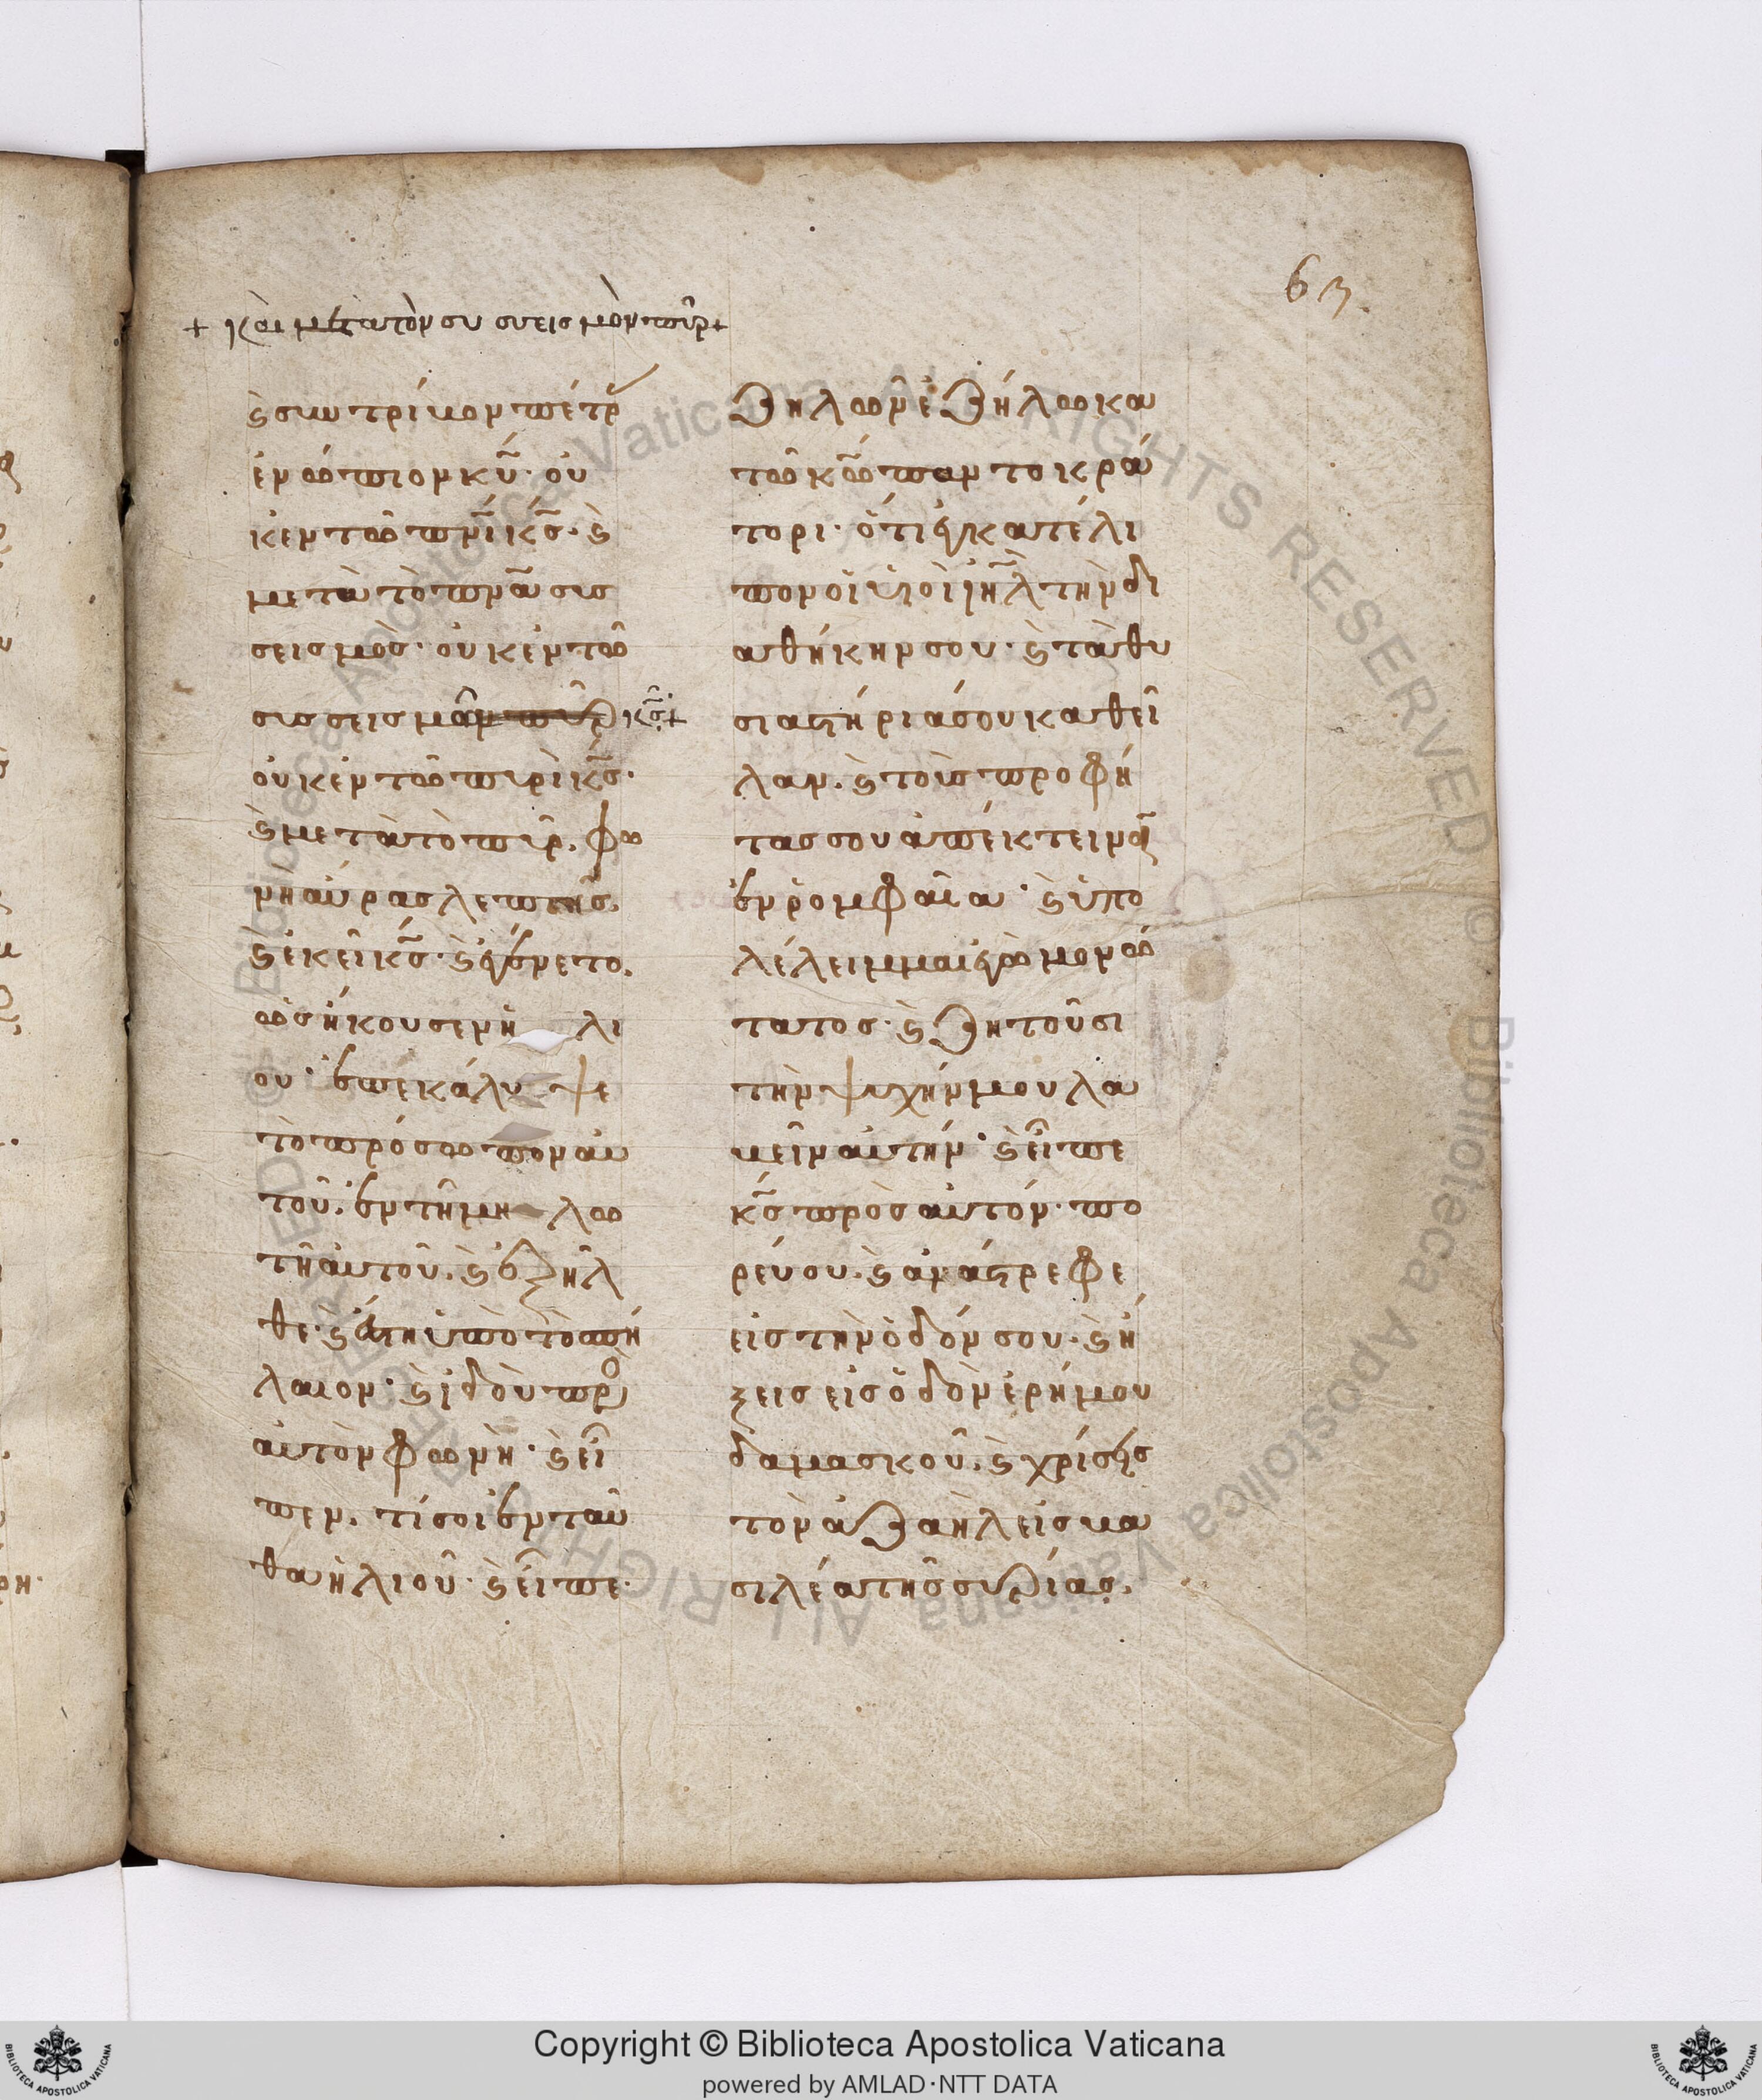 63.
+ κὰι μετατὸν συ συεισμὸν πῦρ +
ϛ̀ συντρίβον πέτρ
ἐνώπιον κ̅υ̅· οὐ
κ ἐν τῶ π̅ν̅ι̅ κ̅ς̅· ϛ̀
μετὰ τὸ π̅ν̅α̅ συσ
σεισμὸς· οὐκ ἐν τῶ
συσσεισμῶ κ̅ς̅· +
οὐκ ἐν τῶ πυρὶ κ̅ς̅·
ϛ̀ μετὰ τὸ πῦρ. φω
νὴ αὔρας λεπτῆς.
ϛ̀ ἐκεῖ κ̅ς̅· ϛ̀ ἐγένετο.
ὡς ἤκουσεν ἠλι
ου· ἐπεκάλυψε
τὸ πρόσωπον αὐ
τοῦ. ἐν τῆ μηλω
τῆ αὐτοῦ. ϛ̀ ἐξῆλ
θε· ϛ̀ ἔστη ὑπὸ τὸ σπή
λαιον· ϛ̀ ἰδοὺ πρὸ
αὐτὸν φωνὴ· ϛ̀ εἶ
πεν. τί σοι ἐνταῦ
θα ἠλιοῦ· ϛ̀ εἶπε·
ζηλῶν ἐζήλωκα
τῶ κ̅ω̅ παντοκρά
τορι· ὅτι ἐγκατέλι
πον οἱ υἱοὶ ι̅η̅λ̅ τὴν δι
αθήκην σου· ϛ̀ τὰ θυ
σιαστήριά σου καθεῖ
λαν. ϛ̀ τοὺς προφή
τας σου ἀπέκτειναν
ἐν ῥομφαῖα· ϛ̀ ὑπο
λέλειμμαι ἐγὼ μονώ
τατος· ϛ̀ ζητοῦσι
τὴν ψυχήν μου λα
βεῖν αὐτήν· ϛ̀ εἶπε
κ̅ς̅ πρὸς αὐτόν· πο
ρεύου. ϛ̀ ἀνάστρεφε
εἰς τὴν ὁδόν σου· ϛ̀ ἥ
ξεις εἰς ὁδὸν ἐρήμου
δαμασκοῦ. ϛ̀ χρίσεις
τὸν ἀζαὴλ εἰς βα
σιλέα τῆς συρίας.
Copyright © Biblioteca Apostolica Vaticana
powered by AMLAD·NTT DATA